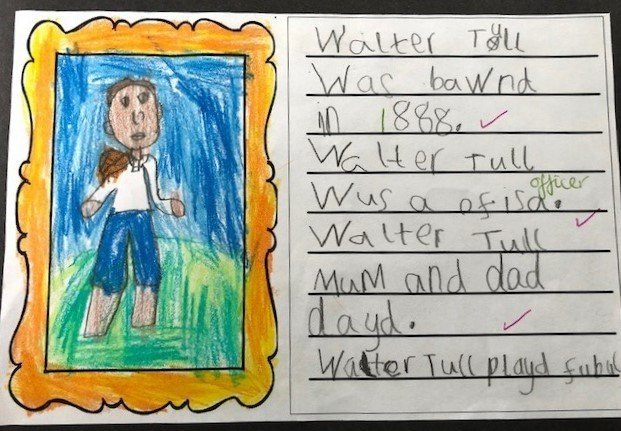 Walter Tyll
Was bawnd
in 1888.
Walter Tull
officer
Wus a ofisa.
Walter Tull
MuM and dad
dayd.
Walter Tull playd fubul